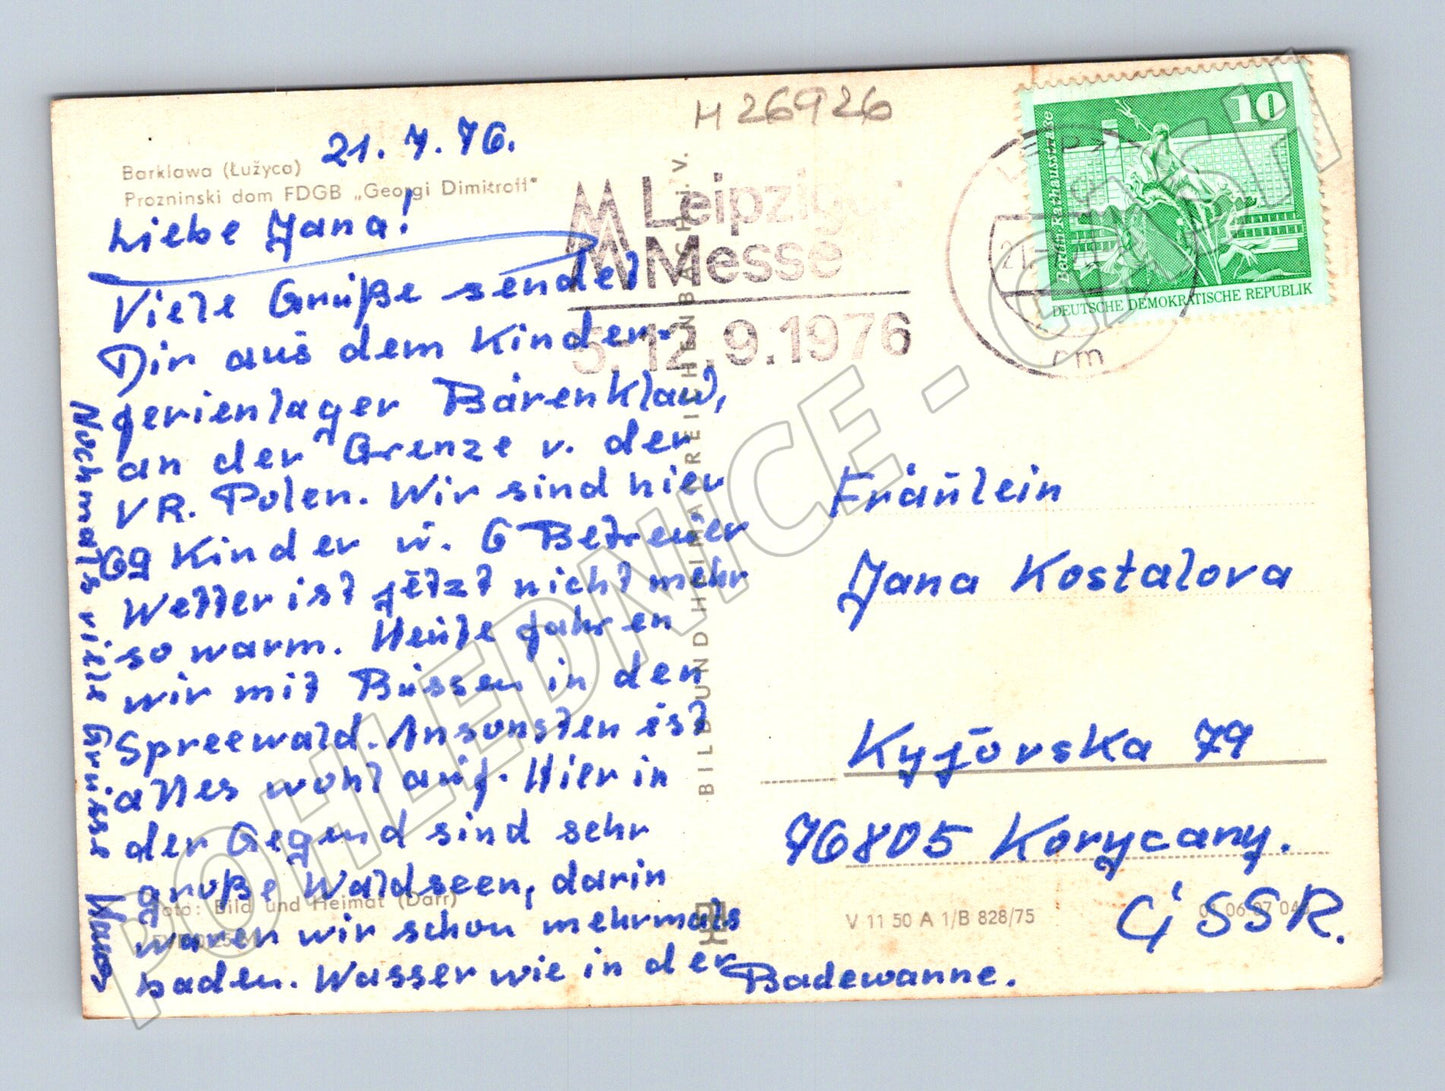 H 26926
21.7.76.
Barklawa (Łužyca)
Prozninski dom FDGB „Georgi Dimitroff"
Liebe Jana!
Viele Grüße sendet
Dir aus dem Kinder-
ferienlager Bärenklau,
an der Grenze v. der
VR. Polen. Wir sind hier
69 Kinder u. 6 Betreuer
Wetter ist jetzt nicht mehr
so warm. Heute fahren
wir mit Bussen in den
Spreewald. Ansonsten ist
alles wohl auf. Hier in
der Gegend sind sehr
große Waldseen, darin
waren wir schon mehrmals
baden. Wasser wie in der Badewanne.
Nochmals viele Grüsse
Foto: Bild und Heimat (Darr)
BILD UND HEIMAT REICHENBACH i. V.
Leipziger
Messe
5.-12.9.1976
10
DEUTSCHE DEMOKRATISCHE REPUBLIK
Fräulein
Jana Kostalova
Kyjovska 79
76805 Koryčany.
ČSSR.
V 11 50 A 1/B 828/75
POHLEDNICE -